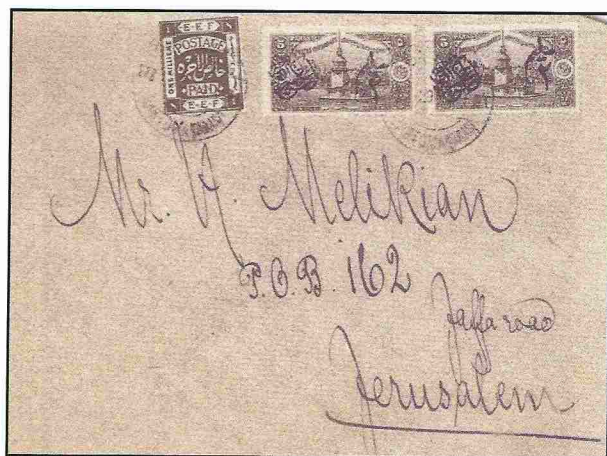 E.E.F
POSTAGE
خالص الاجره
PAID
E.E.F
ONE MILLIEME
5
5
5
5
Mr. A. Melikian
P.O.B. 162
Jaffa road
Jerusalem